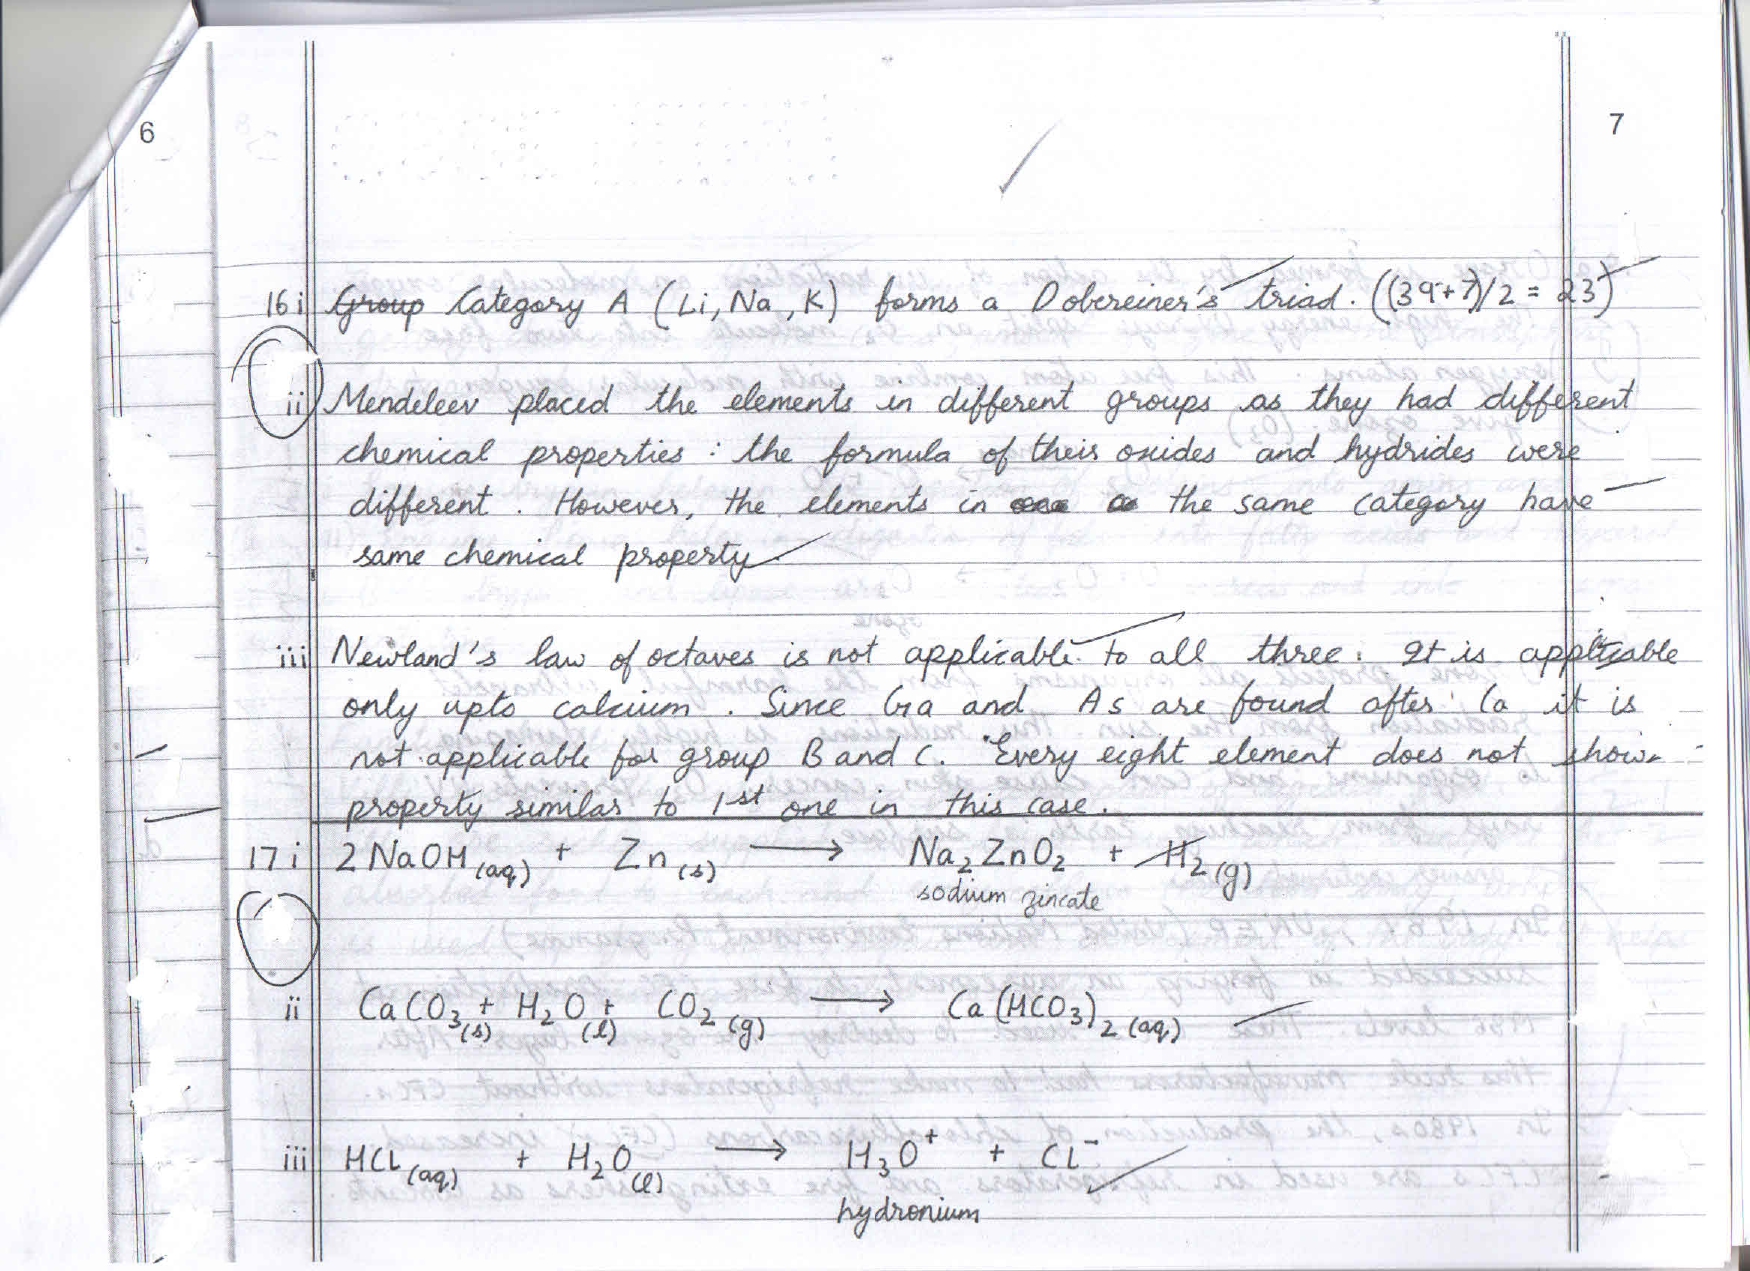 6
7
16 i Group Category A (Li, Na, K) forms a Dobereiner's triad. ((39+7)/2 = 23)
ii Mendeleev placed the elements in different groups as they had different
chemical properties : the formula of their oxides and hydrides were
different. However, the elements in the same category have
same chemical property
iii Newland's law of octaves is not applicable to all three. It is applicable
only upto calcium. Since Ga and As are found after Ca it is
not applicable for group B and C. Every eight element does not show
property similar to 1st one in this case.
17 i 2 NaOH (aq) + Zn (s) ⟶ Na₂ZnO₂ + H₂ (g)
sodium zincate
ii CaCO₃ (s) + H₂O (l) + CO₂ (g) ⟶ Ca(HCO₃)₂ (aq)
iii HCl (aq) + H₂O (l) ⟶ H₃O⁺ + Cl⁻
hydronium